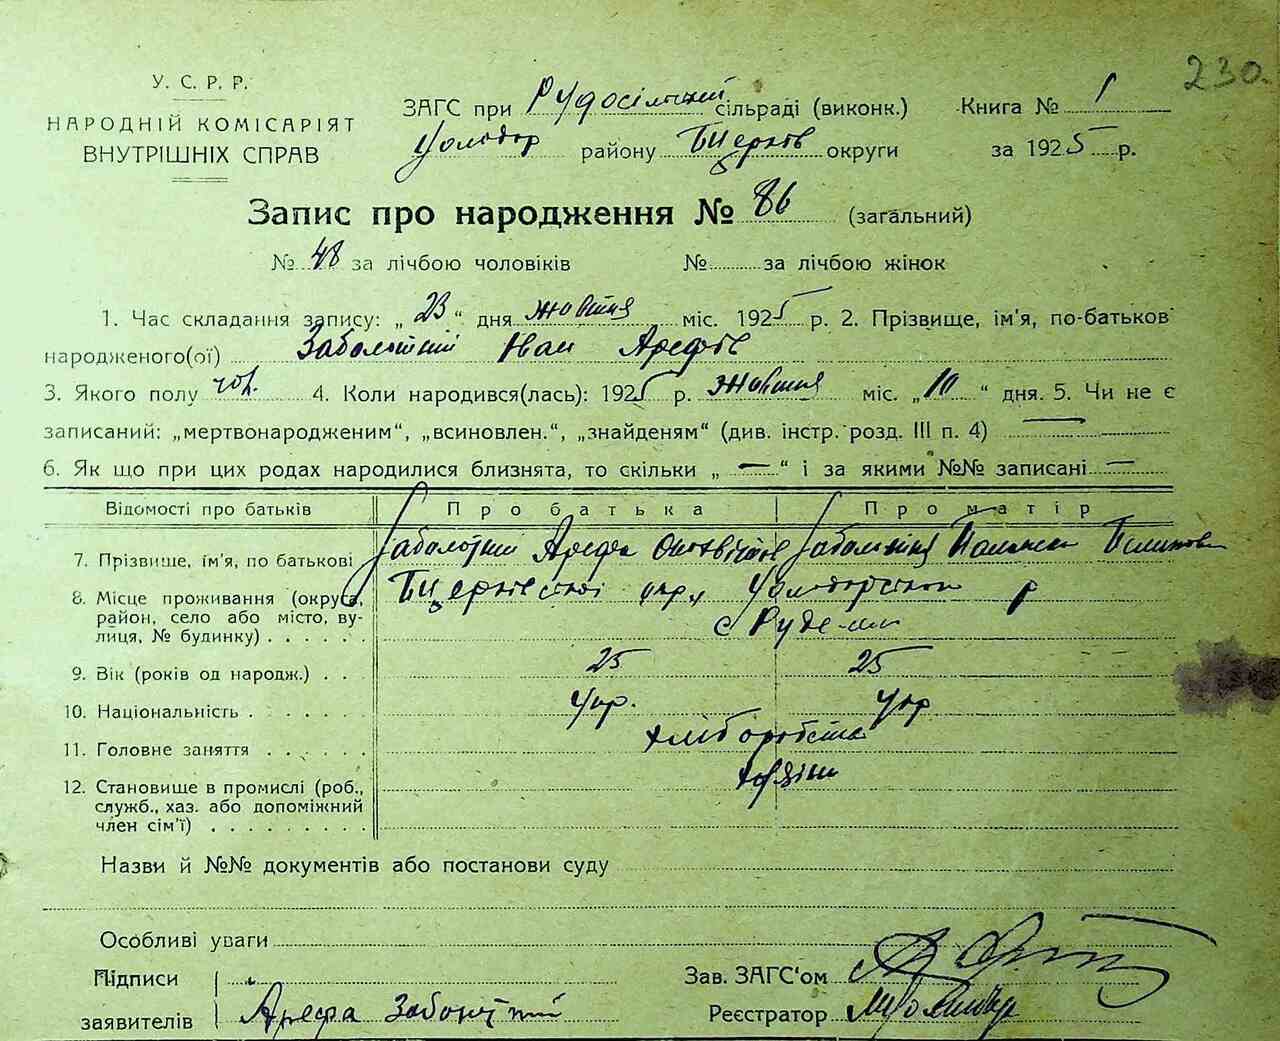 230.
У. С. Р. Р.
НАРОДНІЙ КОМІСАРІЯТ
ВНУТРІШНІХ СПРАВ
ЗАГС при Рудосільський сільраді (виконк.) Книга № 1
Володар району Бцерків округи за 1925 р.
Запис про народження № 86 (загальний)
№ 48 за лічбою чоловіків № за лічбою жінок
1. Час складання запису: „ 23 “ дня жовтня міс. 1925 р. 2. Прізвище, ім'я, по-батьков
народженого(ої) Заболотній Иван Арефів
3. Якого полу чол. 4. Коли народився(лась): 1925 р. жовтня міс. „ 10 “ дня. 5. Чи не є
записаний: „мертвонародженим“, „всиновлен.“, „знайденям“ (див. інстр. розд. III п. 4) —
6. Як що при цих родах народилися близнята, то скільки „ — “ і за якими №№ записані —
Відомості про батьків Про батька Про матір
7. Прізвище, ім'я, по батькові Заболотний Арефа Заболотня
8. Місце проживання (округа, район, село або місто, вулиця, № будинку) Бцерківської окр Володарського р
с Руде-село
9. Вік (років од народж.) 25 25
10. Національність Укр. Укр
11. Головне заняття хліборобство
12. Становище в промислі (роб., служб., хаз. або допоміжний член сім'ї) хазяїн
Назви й №№ документів або постанови суду
Особливі уваги
Підписи
заявителів Арефа Заболотній
Зав. ЗАГС'ом
Реєстратор